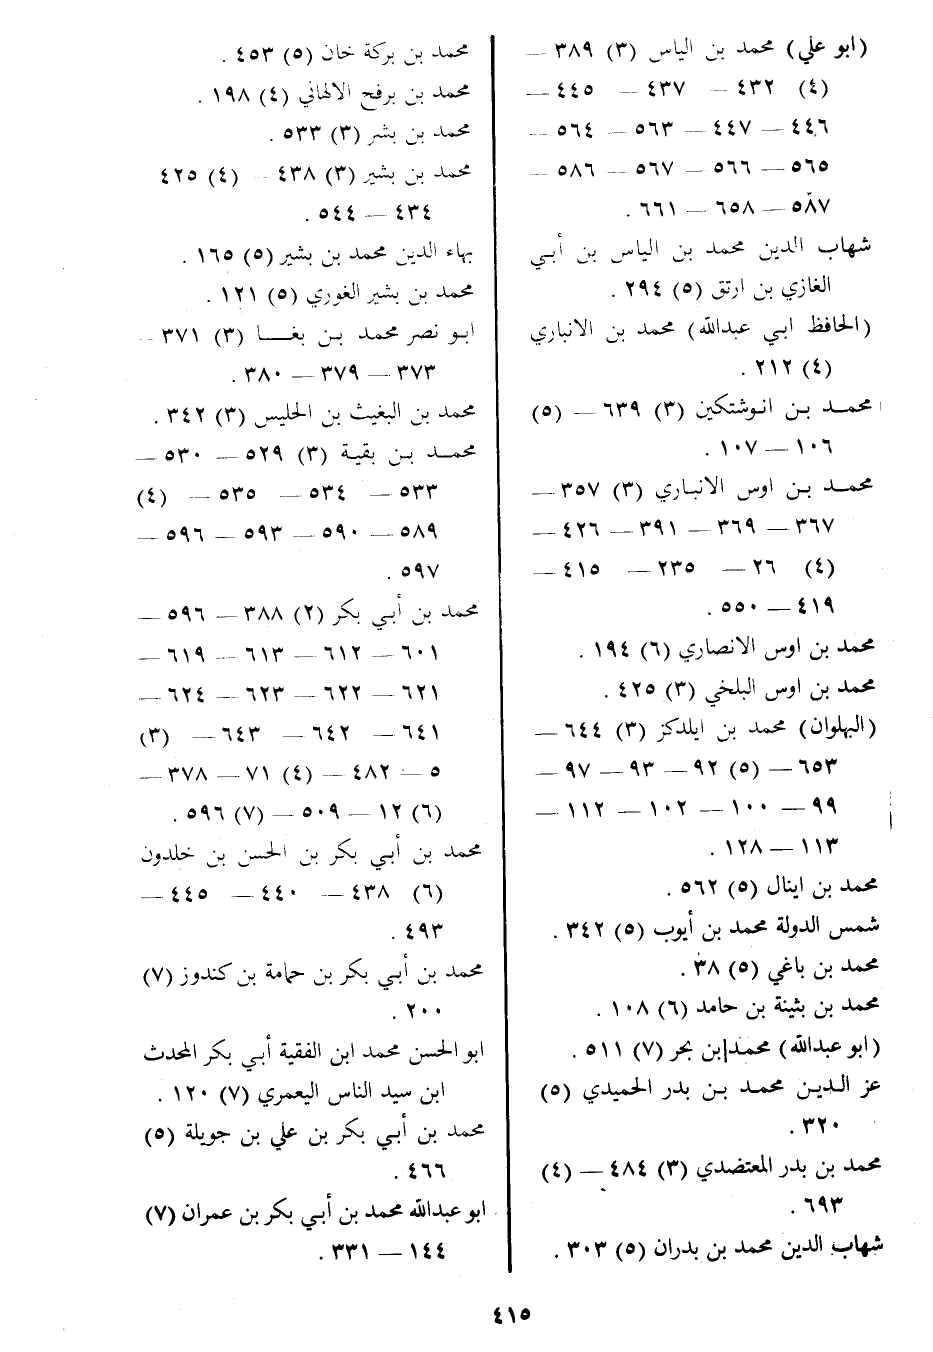 (ابو علي) محمد بن الياس (٣) ٣٨٩ —
(٤) ٤٣٢ — ٤٣٧ — ٤٤٥ —
٤٤٦ — ٤٤٧ — ٥٦٣ — ٥٦٤ —
٥٦٥ — ٥٦٦ — ٥٦٧ — ٥٨٦ —
٥٨٧ — ٦٥٨ — ٦٦١ .
شهاب الدين محمد بن الياس بن أبي
الغازي بن ارتق (٥) ٢٩٤ .
(الحافظ ابي عبدالله) محمد بن الانباري
(٤) ٢١٢ .
محمد بن انوشتكين (٣) ٦٣٩ — (٥)
١٠٦ — ١٠٧ .
محمد بن اوس الانباري (٣) ٣٥٧ —
٣٦٧ — ٣٦٩ — ٣٩١ — ٤٢٦ —
(٤) ٢٦ — ٢٣٥ — ٤١٥ —
٤١٩ — ٥٥٠ .
محمد بن اوس الانصاري (٦) ١٩٤ .
محمد بن اوس البلخي (٣) ٤٢٥ .
(البهلوان) محمد بن ايلدكز (٣) ٦٤٤ —
٦٥٣ — (٥) ٩٢ — ٩٣ — ٩٧ —
٩٩ — ١٠٠ — ١٠٢ — ١١٢ —
١١٣ — ١٢٨ .
محمد بن اينال (٥) ٥٦٢ .
شمس الدولة محمد بن أيوب (٥) ٣٤٢ .
محمد بن باغي (٥) ٣٨ .
محمد بن بثينة بن حامد (٦) ١٠٨ .
(ابو عبدالله) محمد بن بحر (٧) ٥١١ .
عز الدين محمد بن بدر الحميدي (٥)
٣٢٠ .
محمد بن بدر المعتضدي (٣) ٤٨٤ — (٤)
٦٩٣ .
شهاب الدين محمد بن بدران (٥) ٣٠٣ .
محمد بن بركة خان (٥) ٤٥٣ .
محمد بن برفح الالهاني (٤) ١٩٨ .
محمد بن بشر (٣) ٥٣٣ .
محمد بن بشير (٣) ٤٣٨ — (٤) ٤٢٥
٤٣٤ — ٥٤٤ .
بهاء الدين محمد بن بشير (٥) ١٦٥ .
محمد بن بشير الغوري (٥) ١٢١ .
ابو نصر محمد بن بغا (٣) ٣٧١ —
٣٧٣ — ٣٧٩ — ٣٨٠ .
محمد بن البغيث بن الحليس (٣) ٣٤٢ .
محمد بن بقية (٣) ٥٢٩ — ٥٣٠ —
٥٣٣ — ٥٣٤ — ٥٣٥ — (٤)
٥٨٩ — ٥٩٠ — ٥٩٣ — ٥٩٦ —
٥٩٧ .
محمد بن أبي بكر (٢) ٣٨٨ — ٥٩٦ —
٦٠١ — ٦١٢ — ٦١٣ — ٦١٩ —
٦٢١ — ٦٢٢ — ٦٢٣ — ٦٢٤ —
٦٤١ — ٦٤٢ — ٦٤٣ — (٣)
٥ — ٤٨٢ — (٤) ٧١ — ٣٧٨ —
(٦) ١٢ — ٥٠٩ — (٧) ٥٩٦ .
محمد بن أبي بكر بن الحسن بن خلدون
(٦) ٤٣٨ — ٤٤٠ — ٤٤٥ —
٤٩٣ .
محمد بن أبي بكر بن حمامة بن كندوز (٧)
٢٠٠ .
ابو الحسن محمد ابن الفقية أبي بكر المحدث
ابن سيد الناس اليعمري (٧) ١٢٠ .
محمد بن أبي بكر بن علي بن جويلة (٥)
٤٦٦ .
ابو عبدالله محمد بن أبي بكر بن عمران (٧)
١٤٤ — ٣٣١ .
٤١٥